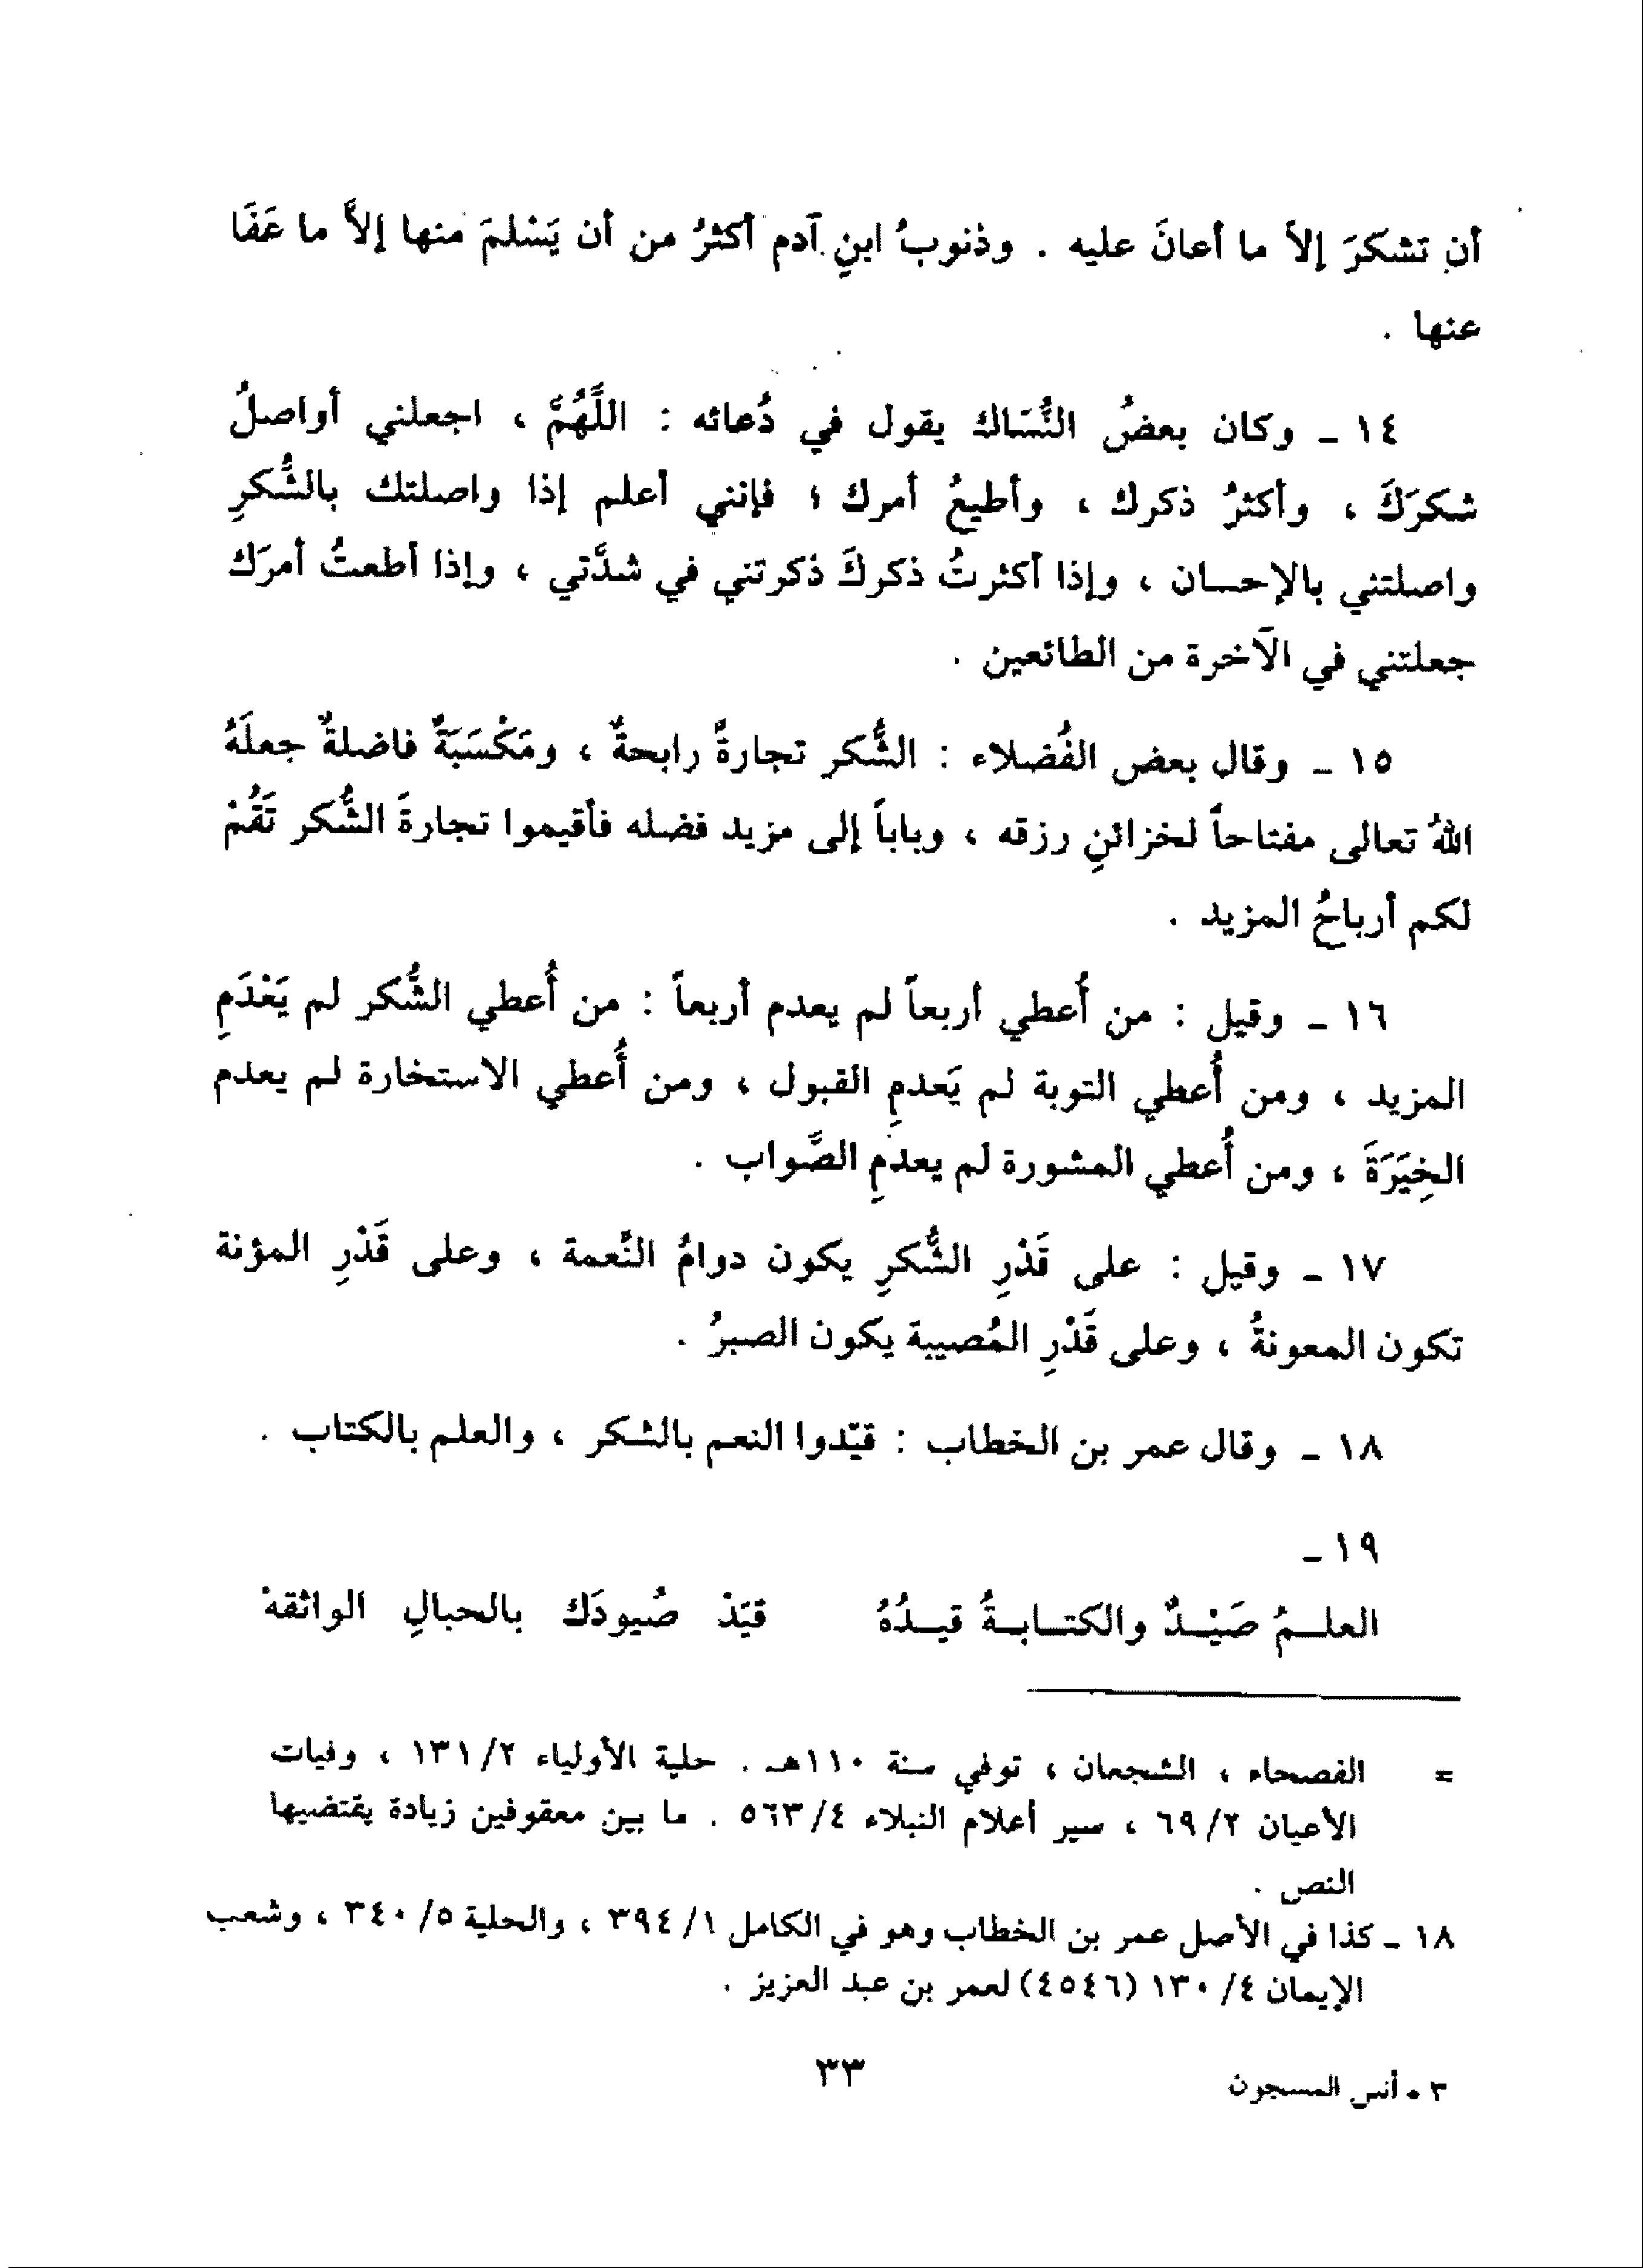 أن تشكرَ إلاّ ما أعانَ عليه . وذنوبُ ابنِ آدم أكثرُ من أن يَسْلمَ منها إلاَّ ما عَفَا
عنها .
١٤ ـ وكان بعضُ النُّسَاك يقول في دُعائه : اللَّهُمَّ ، اجعلني أواصلُ
شكرَكَ ، وأكثرُ ذكرك ، وأطيعُ أمرك ؛ فإنني أعلم إذا واصلتك بالشُّكرِ
واصلتني بالإحسان ، وإذا أكثرتُ ذكركَ ذكرتني في شدَّتي ، وإذا أطعتُ أمرَك
جعلتني في الآخرة من الطائعين .
١٥ ـ وقال بعض الفُضلاء : الشُّكر تجارةٌ رابحةٌ ، ومَكْسَبَةٌ فاضلةٌ جعلَهُ
اللهُ تعالى مفتاحاً لخزائنِ رزقه ، وباباً إلى مزيد فضله فأقيموا تجارةَ الشُّكر تَقُمْ
لكم أرباحُ المزيد .
١٦ ـ وقيل : من أُعطي أربعاً لم يعدم أربعاً : من أُعطي الشُّكر لم يَعْدَمِ
المزيد ، ومن أُعطي التوبة لم يَعدمِ القبول ، ومن أُعطي الاستخارة لم يعدم
الخِيَرَةَ ، ومن أُعطي المشورة لم يعدمِ الصَّواب .
١٧ ـ وقيل : على قَدْرِ الشُّكرِ يكون دوامُ النِّعمة ، وعلى قَدْرِ المؤنة
تكون المعونةُ ، وعلى قَدْرِ المُصيبة يكون الصبرُ .
١٨ ـ وقال عمر بن الخطاب : قيّدوا النعم بالشكر ، والعلم بالكتاب .
١٩ ـ
العلـمُ صَيْـدٌ والكتـابـةُ قيـدُهُ قيّدْ صُيودَك بالحبالِ الواثقهْ
= الفصحاء ، الشجعان ، توفي سنة ١١٠هـ . حلية الأولياء ١٣١/٢ ، وفيات
الأعيان ٦٩/٢ ، سير أعلام النبلاء ٥٦٣/٤ . ما بين معقوفين زيادة يقتضيها
النص .
١٨ ـ كذا في الأصل عمر بن الخطاب وهو في الكامل ٣٩٤/١ ، والحلية ٣٤٠/٥ ، وشعب
الإيمان ١٣٠/٤ (٤٥٤٦) لعمر بن عبد العزيز .
٣ • أنس المسجون
٣٣